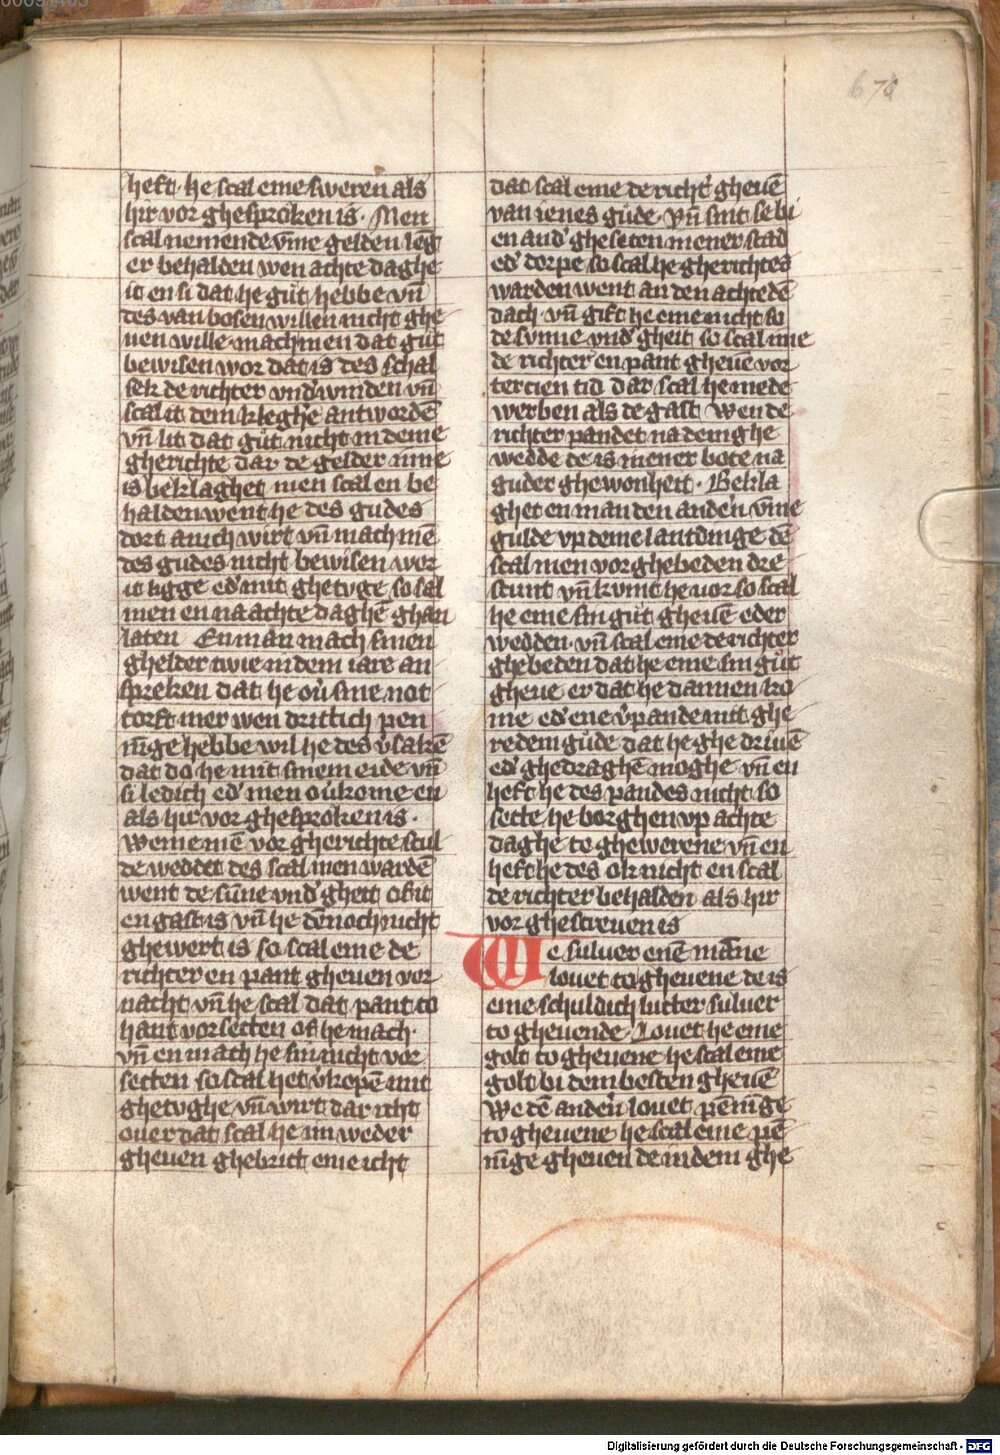 heft· he scal eme sweren als
hir vor ghesproken is· Men
scal nemende vm̄e gelden lenḡ
er behalden wen achte daghe
it en si dat he gůt hebbe vn̄
des van bosen willen nicht ghe
uen wille· mach men dat gůt
bewisen wor dat is des schal
sek de richter vnd̕ winden vn̄
scal it dem kleghe᷑ antwordē
vn̄ lit dat gůt nicht in deme
gherichte dar de gelder inne
is beklaghet men scal en be
halden went he des gudes
dort anich wirt vn̄ mach mē
des gudes nicht bewisen wor
it ligge ed̕ mit ghetvge so sal
men en na achte daghē ghan
laten Enman mach sinen
ghelder twie in dem iare an
spreken dat he ou̕ sine not
torft mer wen drittich pen
nīge hebbe wil he des v̕sakē
dat do he mit sinem eide vn̄
si ledich ed̕ men ou̕kome en
als hir vor ghesproken is·
Weme mē vor gherichte scul
de weddet des scal men wardē
went de sūne vnd̕ gheit ofit
en gast is vn̄ he dēnoch nicht
ghewert is so scal eme de
richter en pant gheuen vor
nacht vn̄ he scal dat pant to
hant vorsetten of he mach·
vn̄ en mach he sin nicht vor
setten so scal het v̕kopē mit
ghetvghe vn̄ wirt dar icht
ouer dat scal he im weder
gheuen ghebrict eme icht
dat scal eme de richt̕ gheuē
van ienes gůde· vn̄ sint se bi
en and̕ gheseten in ener stad
ed̕ dorpe so scal he gherichtes
warden went an den achtedē
dach· vn̄ gift he eme nicht so
de sunne vnd̕ gheit so scal ime
de richter en pant gheuē vor
tercien tid dar scal he mede
werben als de gast Wen de
richter pandet na dem ghe
wedde de is in ener bote na
guder ghewonheit· Bekla
ghet en man den andeň vm̄e
gulde vp deme lantdinge dē
scal men vorghebeden dre
stunt vn̄ kvmt he vor so scal
he eme sin gůt gheuē eder
wedden· vn̄ scal eme de richter
ghebeden dat he eme sin gůt
gheue er dat he dannen ko
me ed̕ ene v̕pande mit ghe
redem gůde dat he ghe driuē
ed̕ ghedraghē moghe vn̄ en
heft he des pandes nicht so
sette he borghen vp achte
daghe to ghewerene vn̄ en
heft he des ok nicht en scal
de richter behalden als hir
vor ghescreuen is
We suluer enē māne
louet to gheuene de is
eme schuldich lutter suluer
to gheuende· Louet he eme
golt to gheuene he scal eme
golt bi dem besten gheuē
We dē andeň louet pēnīge
to gheuene he scal eme pē
nīge gheuen de in dem ghe
Digitalisierung gefördert durch die Deutsche Forschungsgemeinschaft - DFG